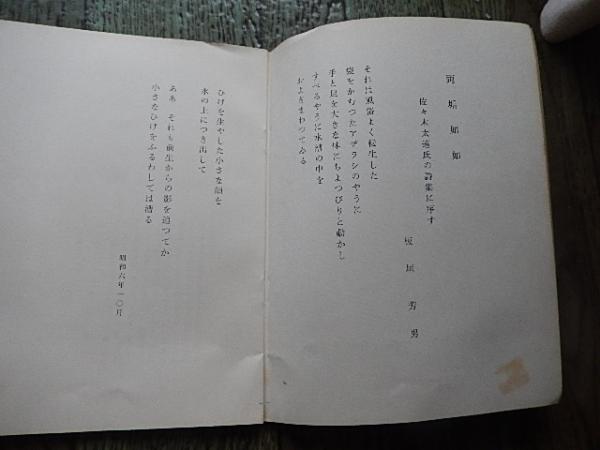 両垢如如
佐々木太造氏の詩集に序す
坂垣芳男
それは風俗よく転生した
袋をかむつたアザラシのやうに
手と足を大きな体にちよつぴりと動かし
すべるやうに水槽の中を
およぎまわつてゐる
ひげを生やした小さな顔を
水の上につき出して
ああ それも前生からの影を追つてか
小さなひげをふるわしては潜る
昭和六年一〇月